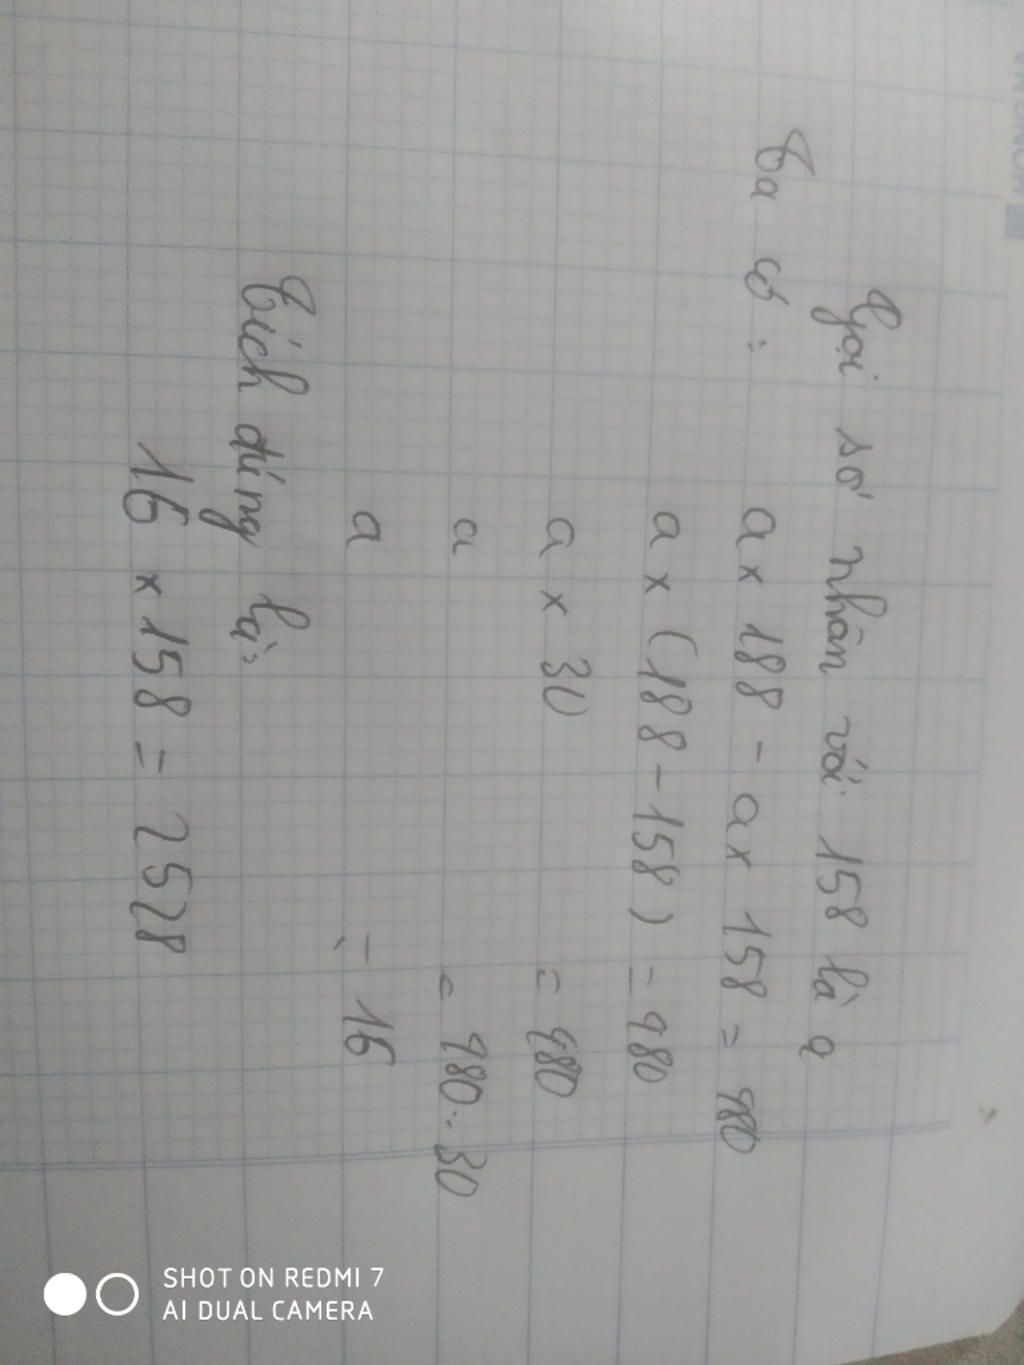 Gọi số nhân với 158 là a
Ta có :
a x 188 - a x 158 = 480
a x (188 - 158) = 480
a x 30 = 480
a = 480 : 30
a = 16
Tích đúng là:
16 x 158 = 2528
SHOT ON REDMI 7
AI DUAL CAMERA